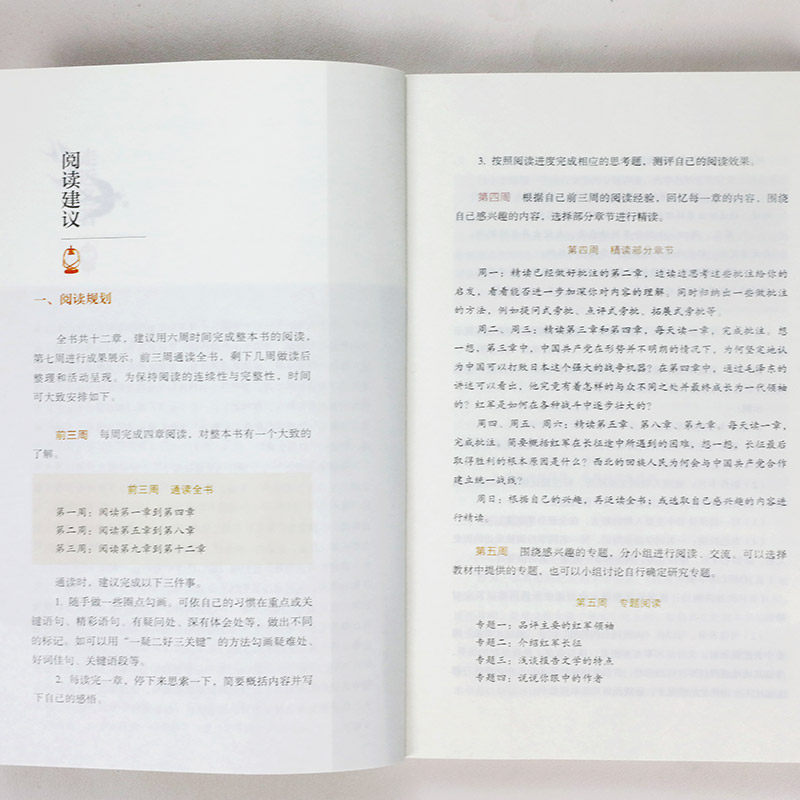 阅读建议
一、阅读规划
全书共十二章，建议用六周时间完成整本书的阅读，
第七周进行成果展示。前三周通读全书，剩下几周做读后
整理和活动呈现。为保持阅读的连续性与完整性，时间
可大致安排如下。
前三周 每周完成四章阅读，对整本书有一个大致的
了解。
前三周 通读全书
第一周：阅读第一章到第四章
第二周：阅读第五章到第八章
第三周：阅读第九章到第十二章
通读时，建议完成以下三件事。
1. 随手做一些圈点勾画。可依自己的习惯在重点或关
键语句、精彩语句、有疑问处、深有体会处等，做出不同
的标记。如可以用“一疑二好三关键”的方法勾画疑难处、
好词佳句、关键语段等。
2. 每读完一章，停下来思索一下，简要概括内容并写
下自己的感悟。
3. 按照阅读进度完成相应的思考题，测评自己的阅读效果。
第四周 根据自己前三周的阅读经验，回忆每一章的内容，围绕
自己感兴趣的内容，选择部分章节进行精读。
第四周 精读部分章节
周一：精读已经做好批注的第二章，边读边思考这些批注给你的
启发，看看能否进一步加深你对内容的理解。同时归纳出一些做批注
的方法，例如提问式旁批、点评式旁批、拓展式旁批等。
周二、周三：精读第三章和第四章，每天读一章，完成批注。想
一想，第三章中，中国共产党在形势并不明朗的情况下，为何坚定地认
为中国可以打败日本这个强大的战争机器？在第四章中，通过毛泽东的
讲述可以看出，他究竟有着怎样的与众不同之处并最终成长为一代领袖
的？红军是如何在各种战斗中逐步壮大的？
周四、周五、周六：精读第五章、第八章、第九章，每天读一章，
完成批注。简要概括红军在长征途中所遇到的困难，想一想，长征最后
取得胜利的根本原因是什么？西北的回族人民为何会与中国共产党合作
建立统一战线？
周日：根据自己的兴趣，再泛读全书；或选取自己感兴趣的内容进
行精读。
第五周 围绕感兴趣的专题，分小组进行阅读、交流。可以选择
教材中提供的专题，也可以小组讨论自行确定研究专题。
第五周 专题阅读
专题一：品评主要的红军领袖
专题二：介绍红军长征
专题三：浅谈报告文学的特点
专题四：说说你眼中的作者